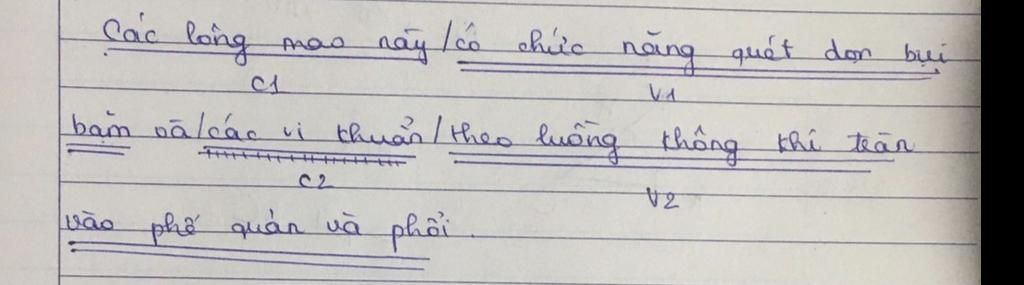 Các lông mao này / có chức năng quét dọn bụi
C1 V1
bẩm và / các vi khuẩn / theo luồng không khí tràn
C2 V2
vào phế quản và phổi.